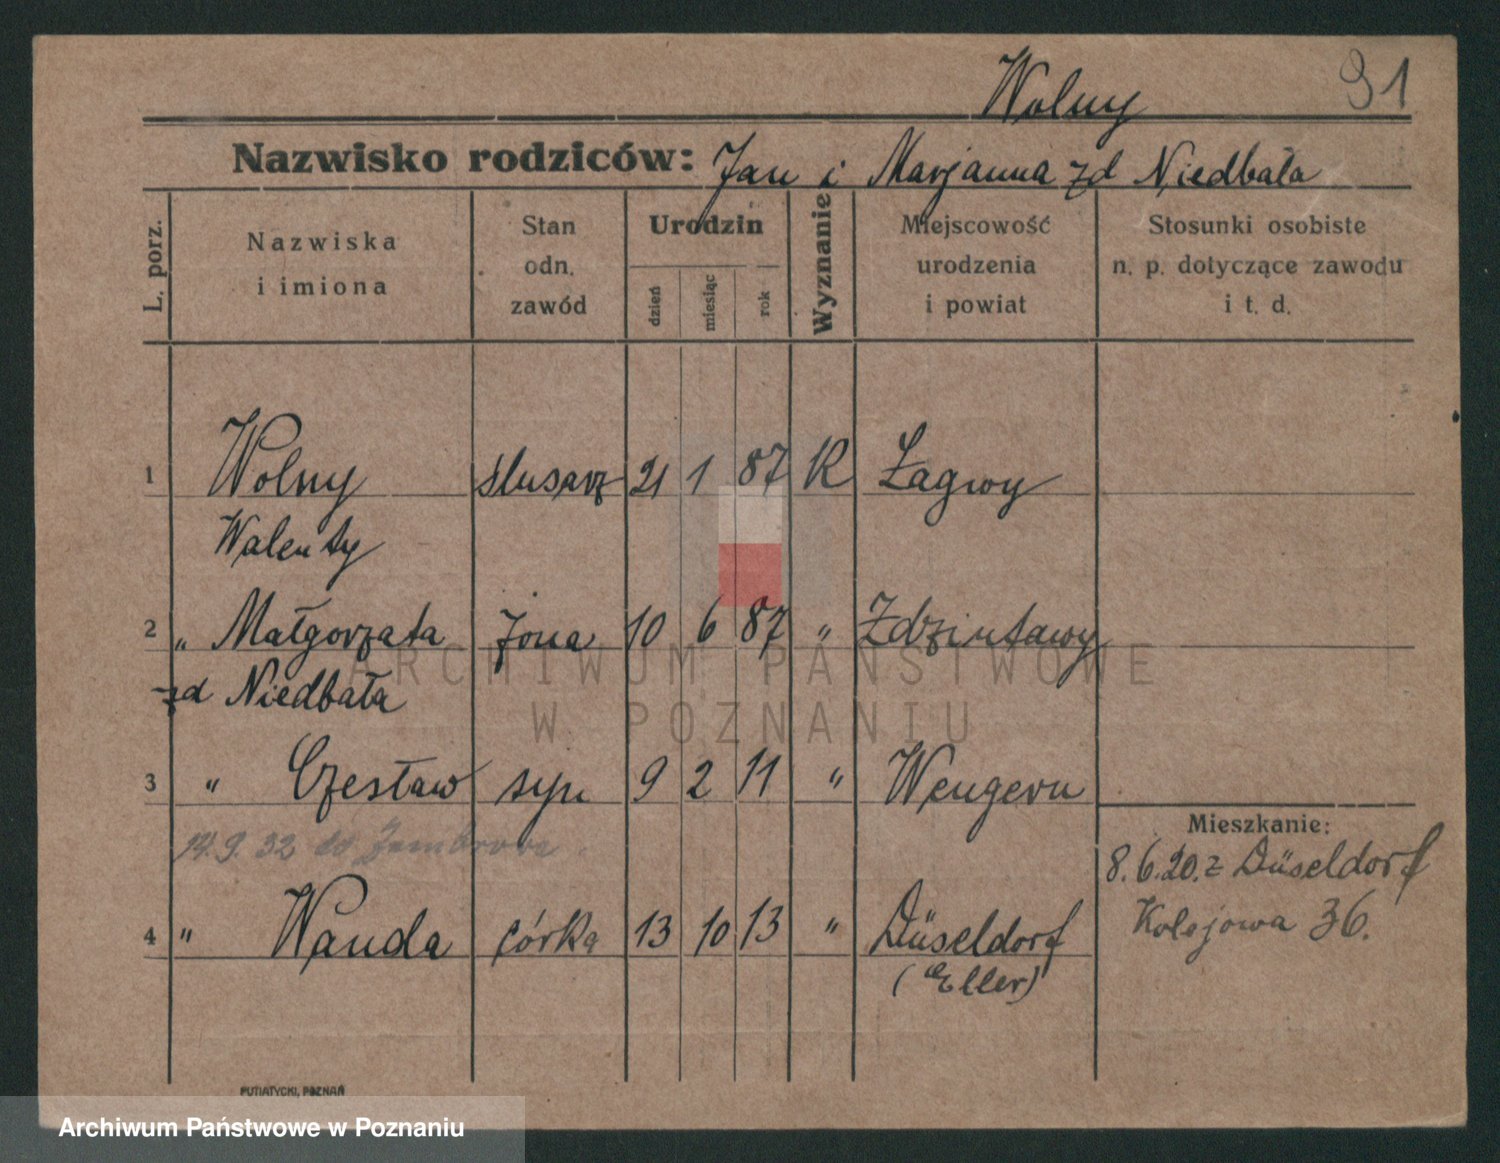 Wolny
91
Nazwisko rodziców: Jan i Marjanna zd Niedbała
L. porz.
Nazwiska
i imiona
Stan
odn.
zawód
Urodzin
dzień
miesiąc
rok
Wyznanie
Miejscowość
urodzenia
i powiat
Stosunki osobiste
n. p. dotyczące zawodu
i t. d.
1 Wolny ślusarz 21 1 87 K Łagwy
Walenty
2 „ Małgorzata żona 10 6 87 „ Zdzintawy
zd Niedbała
3 „ Czesław syn 9 2 11 „ Wengern
14.9.32 do
Mieszkanie:
8.6.20. z Düseldorf
Kolejowa 36.
4 „ Wanda córka 13 10 13 „ Düseldorf
(Eller)
PUTIATYCKI, POZNAŃ
ARCHIWUM PAŃSTWOWE
W POZNANIU
Archiwum Państwowe w Poznaniu